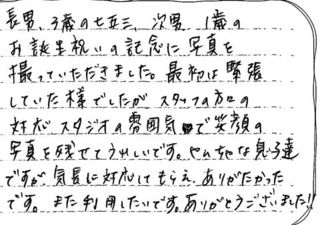 長男、3歳の七五三、次男、1歳の
お誕生祝いの記念に写真を
撮っていただきました。最初は緊張
していた様でしたがスタッフの方々の
対応、スタジオの雰囲気で笑顔の
写真を残せてうれしいです。やんちゃな息子達
ですが気長に対応してもらえ、ありがたかった
です。また利用したいです。ありがとうございました!!